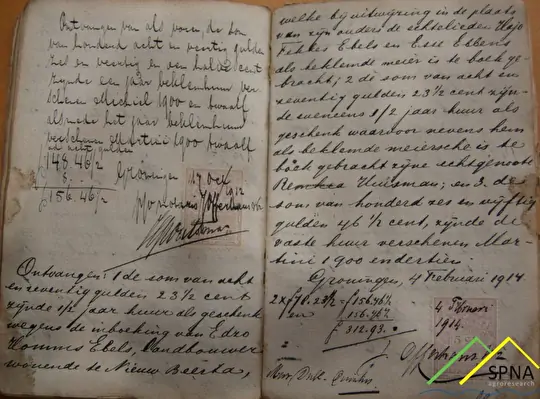 Ontvangen van als voren, de som
van honderd acht en veertig gulden
zes en veertig en een halve cent
zijnde een jaar beklemhuur
verschenen Michiel 1900 en twaalf
alsmede het jaar beklemhuur
verschenen Martini 1900 twaalf
en acht gulden
ƒ 148.46½
8.
ƒ 156.46½
Groningen
17 Oct
1912
Ontvangen: 1 de som van acht
en zeventig gulden 23½ cent
zijnde ½ jaar huur als geschenk
wegens de inboeking van Edzo
Hommes Ebels, Landbouwer
wonende te Nieuw Beerta,
welke bij uitwijzing in de plaats
van zijn ouders de echtelieden Hajo
Fekkes Ebels en Esse Ebbens
als beklemde meier is te boek ge-
bracht; 2 de som van acht en
zeventig gulden 23½ cent zijn-
de eveneens 1/2 jaar huur als
geschenk waardoor nevens hem
als beklemde meiersche is te
boek gebracht zijne echtgenoote
Huisman; en 3 de
som van honderd zes en vijftig
gulden 46½ cent, zijnde de
vaste huur verschenen Mar-
tini 1900 endertien.
Groningen, 4 Februari 1914.
2 x ƒ 78.23½ = ƒ 156.46½
en 156.46½
ƒ 312.93.
4 Februari
1914.
SPNA
agroresearch